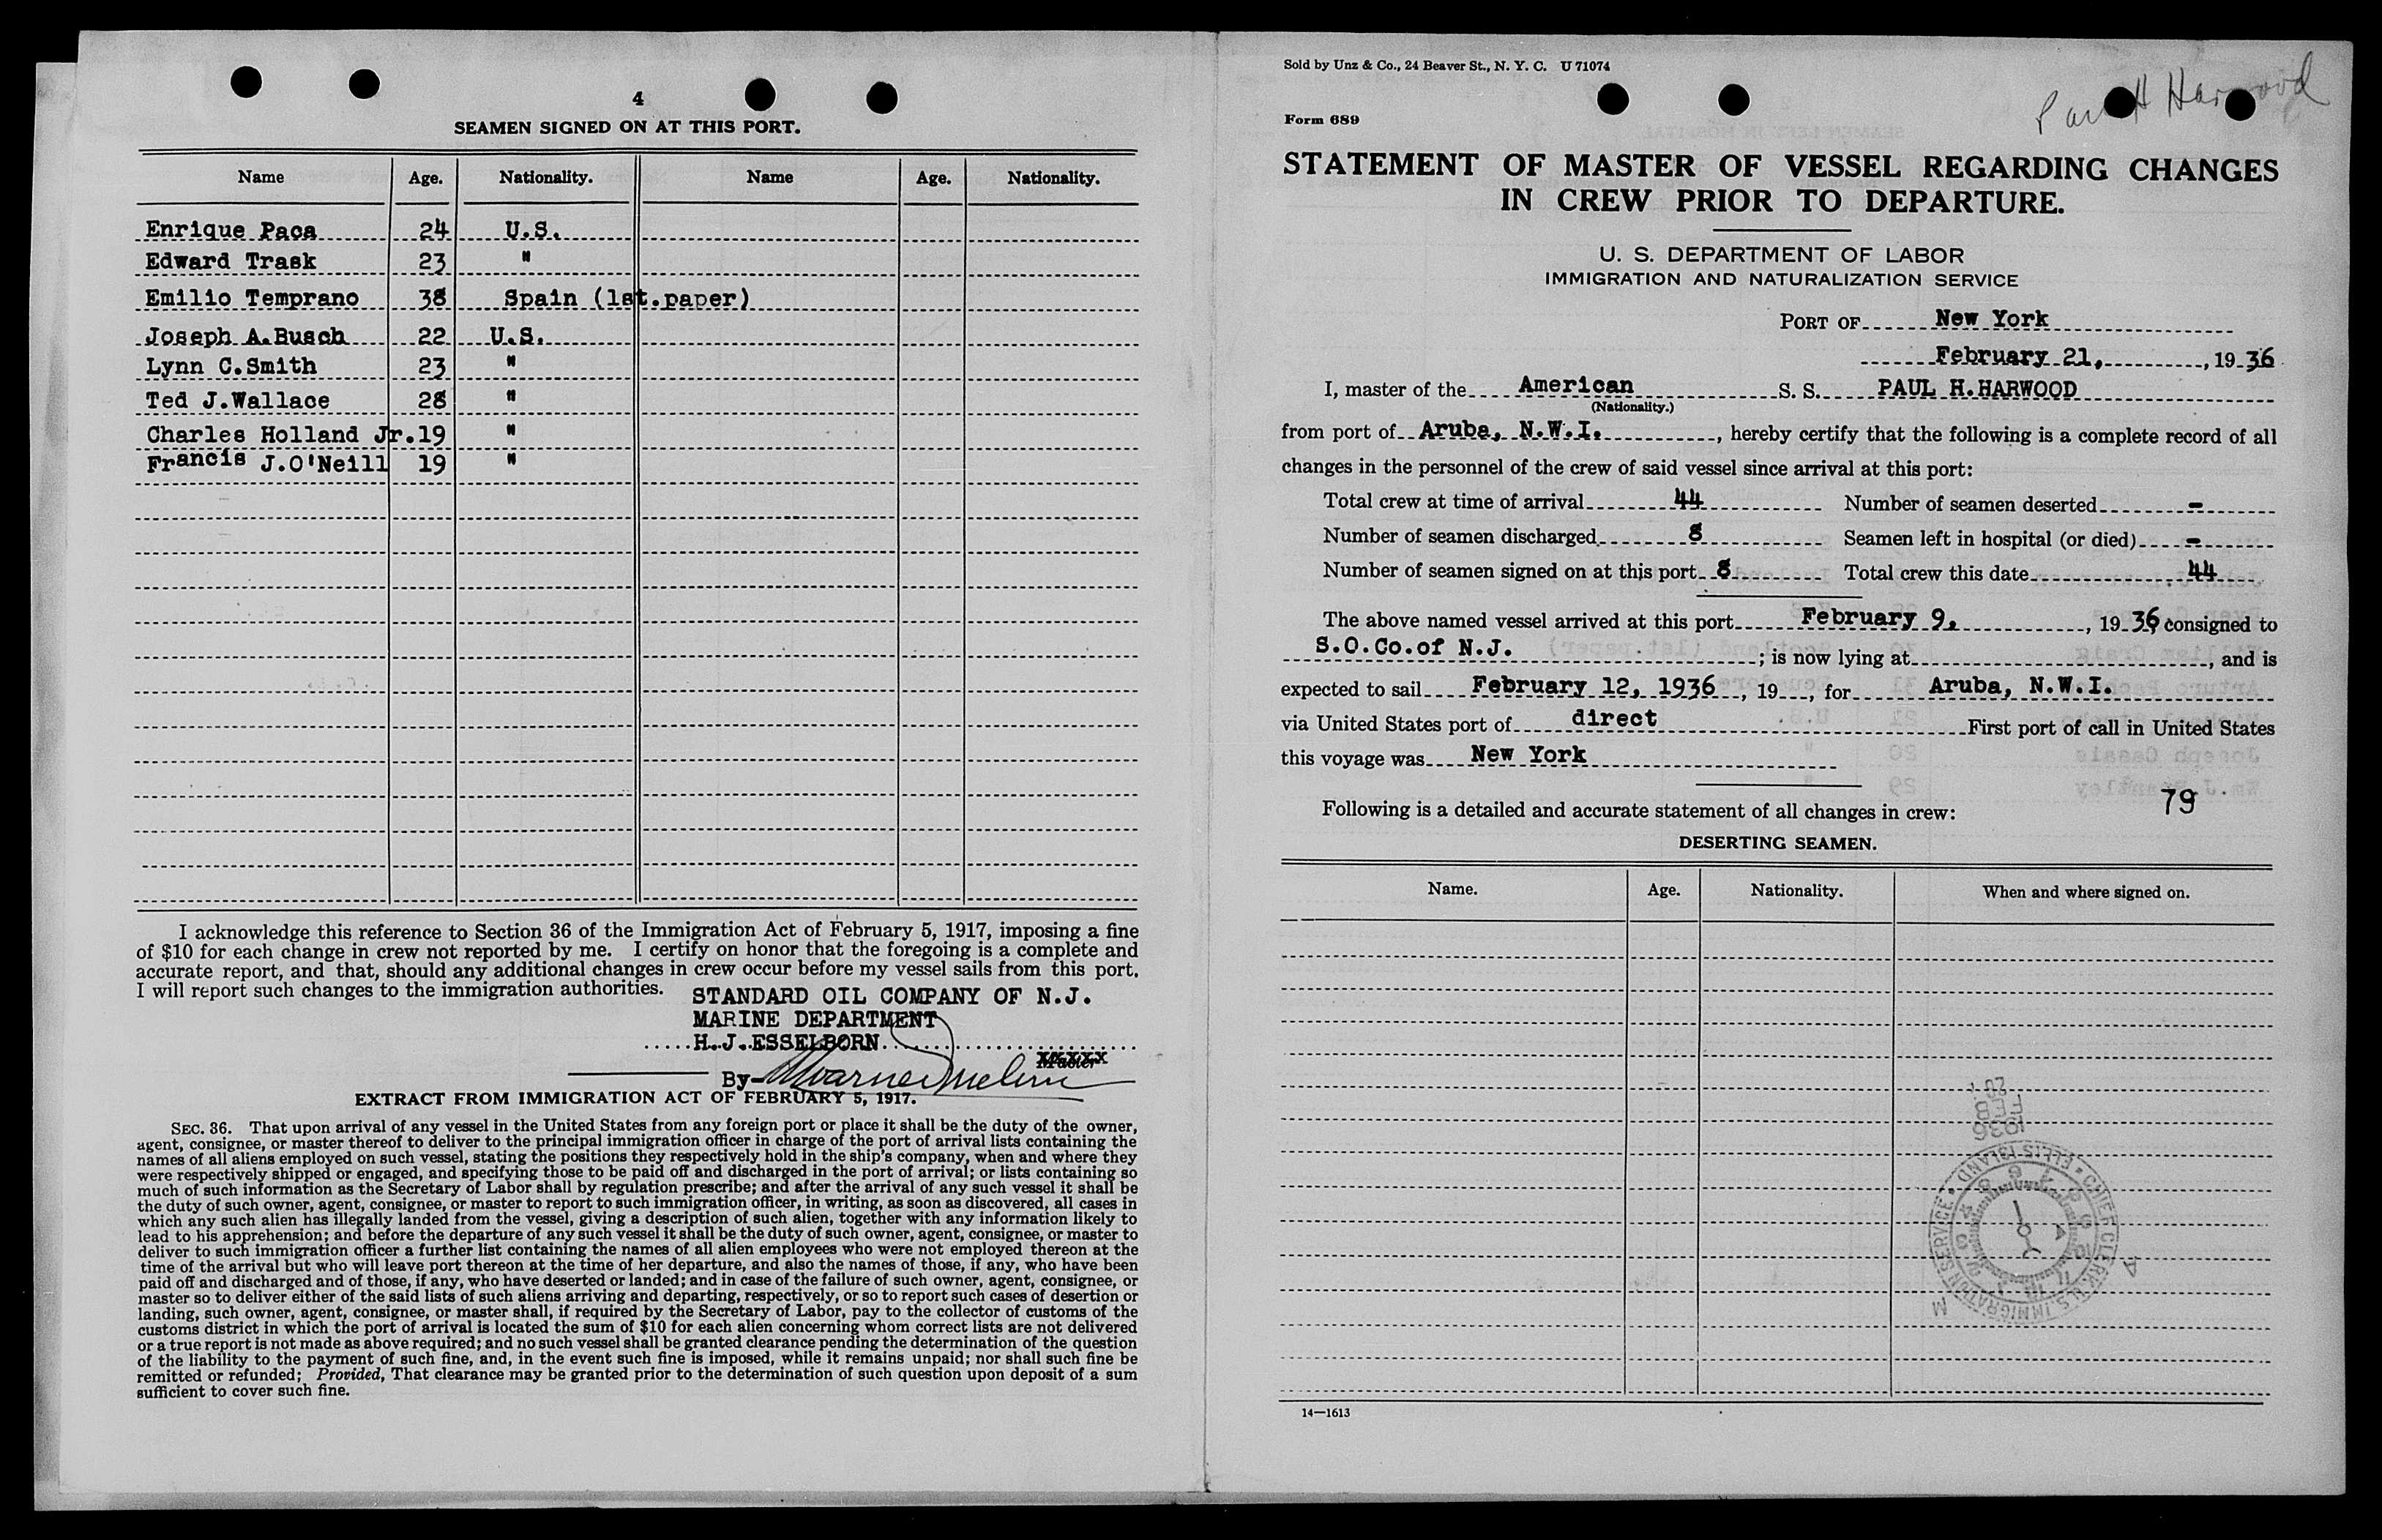 4
SEAMEN SIGNED ON AT THIS PORT.
Name Age. Nationality. Name Age. Nationality.
Enrique Paca 24 U.S.
Edward Trask 23 "
Emilio Temprano 38 Spain (1st.paper)
Joseph A.Busch 22 U.S.
Lynn C.Smith 23 "
Ted J.Wallace 28 "
Charles Holland Jr.19 "
Francis J.O'Neill 19 "
I acknowledge this reference to Section 36 of the Immigration Act of February 5, 1917, imposing a fine
of $10 for each change in crew not reported by me. I certify on honor that the foregoing is a complete and
accurate report, and that, should any additional changes in crew occur before my vessel sails from this port,
I will report such changes to the immigration authorities.
STANDARD OIL COMPANY OF N.J.
MARINE DEPARTMENT
H.J.ESSELBORN
Master
By
EXTRACT FROM IMMIGRATION ACT OF FEBRUARY 5, 1917.
SEC. 36. That upon arrival of any vessel in the United States from any foreign port or place it shall be the duty of the owner,
agent, consignee, or master thereof to deliver to the principal immigration officer in charge of the port of arrival lists containing the
names of all aliens employed on such vessel, stating the positions they respectively hold in the ship's company, when and where they
were respectively shipped or engaged, and specifying those to be paid off and discharged in the port of arrival; or lists containing so
much of such information as the Secretary of Labor shall by regulation prescribe; and after the arrival of any such vessel it shall be
the duty of such owner, agent, consignee, or master to report to such immigration officer, in writing, as soon as discovered, all cases in
which any such alien has illegally landed from the vessel, giving a description of such alien, together with any information likely to
lead to his apprehension; and before the departure of any such vessel it shall be the duty of such owner, agent, consignee, or master to
deliver to such immigration officer a further list containing the names of all alien employees who were not employed thereon at the
time of the arrival but who will leave port thereon at the time of her departure, and also the names of those, if any, who have been
paid off and discharged and of those, if any, who have deserted or landed; and in case of the failure of such owner, agent, consignee, or
master so to deliver either of the said lists of such aliens arriving and departing, respectively, or so to report such cases of desertion or
landing, such owner, agent, consignee, or master shall, if required by the Secretary of Labor, pay to the collector of customs of the
customs district in which the port of arrival is located the sum of $10 for each alien concerning whom correct lists are not delivered
or a true report is not made as above required; and no such vessel shall be granted clearance pending the determination of the question
of the liability to the payment of such fine, and, in the event such fine is imposed, while it remains unpaid; nor shall such fine be
remitted or refunded; Provided, That clearance may be granted prior to the determination of such question upon deposit of a sum
sufficient to cover such fine.
Sold by Unz & Co., 24 Beaver St., N. Y. C. U 71074
Form 689
Paul H Harwood
STATEMENT OF MASTER OF VESSEL REGARDING CHANGES
IN CREW PRIOR TO DEPARTURE.
U. S. DEPARTMENT OF LABOR
IMMIGRATION AND NATURALIZATION SERVICE
PORT OF New York
February 21, , 19 36
I, master of the American S. S. PAUL H.HARWOOD
(Nationality.)
from port of Aruba, N.W.I. , hereby certify that the following is a complete record of all
changes in the personnel of the crew of said vessel since arrival at this port:
Total crew at time of arrival 44 Number of seamen deserted -
Number of seamen discharged 8 Seamen left in hospital (or died) -
Number of seamen signed on at this port 8 Total crew this date 44
The above named vessel arrived at this port February 9, , 19 36, consigned to
S.O.Co.of N.J. ; is now lying at , and is
expected to sail February 12, 1936 , 19 , for Aruba, N.W.I.
via United States port of direct First port of call in United States
this voyage was New York
79
Following is a detailed and accurate statement of all changes in crew:
DESERTING SEAMEN.
Name. Age. Nationality. When and where signed on.
1936
FEB
20
CHIEF CLERK U.S. IMMIGRATION SERVICE • ELLIS ISLAND
A M
14—1613